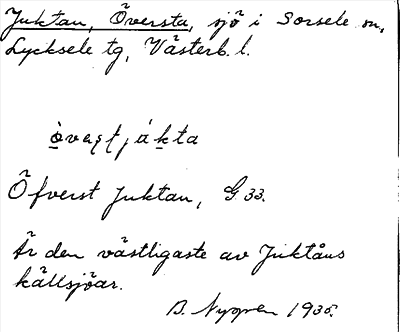 Juktan, Översta, sjö i Sorsele sn,
Lycksele tg, Västerb. l.
Öfverst Juktan, G. 33.
Är den västligaste av Juktåns
källsjöar.
B. Nygren 1935.